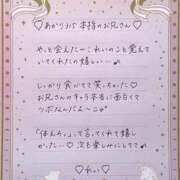 ♡あかりﾝﾁ 本指のお兄さん♡
やっと会えたー！これいのこと覚えて
いてくれたの嬉しい…♪
しっかり食いてて笑っちゃた♡
お兄さんのキャラ本当に面白くて
ツボなんだよ〜♪
「休んで。」って言ってくれて嬉し
かった…♡ 次も楽しみにしてて♪
♡れい♡